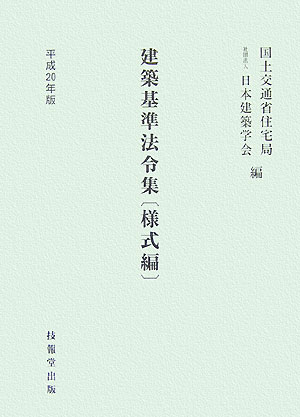 国土交通省住宅局
社団法人 日本建築学会
編
建築基準法令集〔様式編〕
平成20年版
技報堂出版